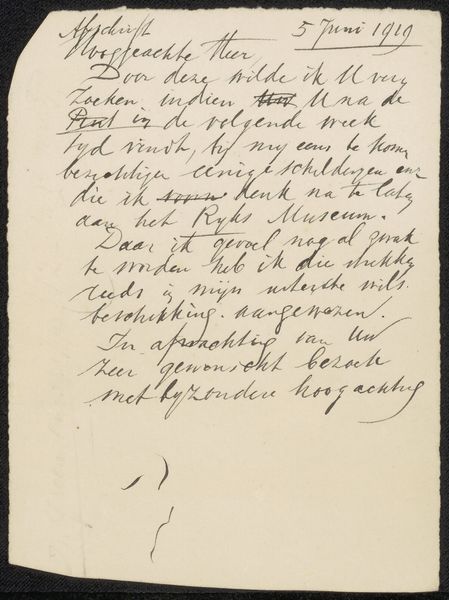 Afschrift 5 Juni 1919
Hooggeachte Heer,
Door deze wilde ik U ver
zoeken, indien U na de
Pint in de volgende week
tyd vindt, by my eens te komen
bezichtigen eenige schilderyen enz
die ik denk na te laten
aan het Ryks Museum.
Daar ik gevoel nog al zwak
te worden heb ik die stukken
reeds in mijn uiterste wils
beschikking aangewezen.
In afwachting van Uw
zeer gewenscht bezoek
met byzondere hoogachting